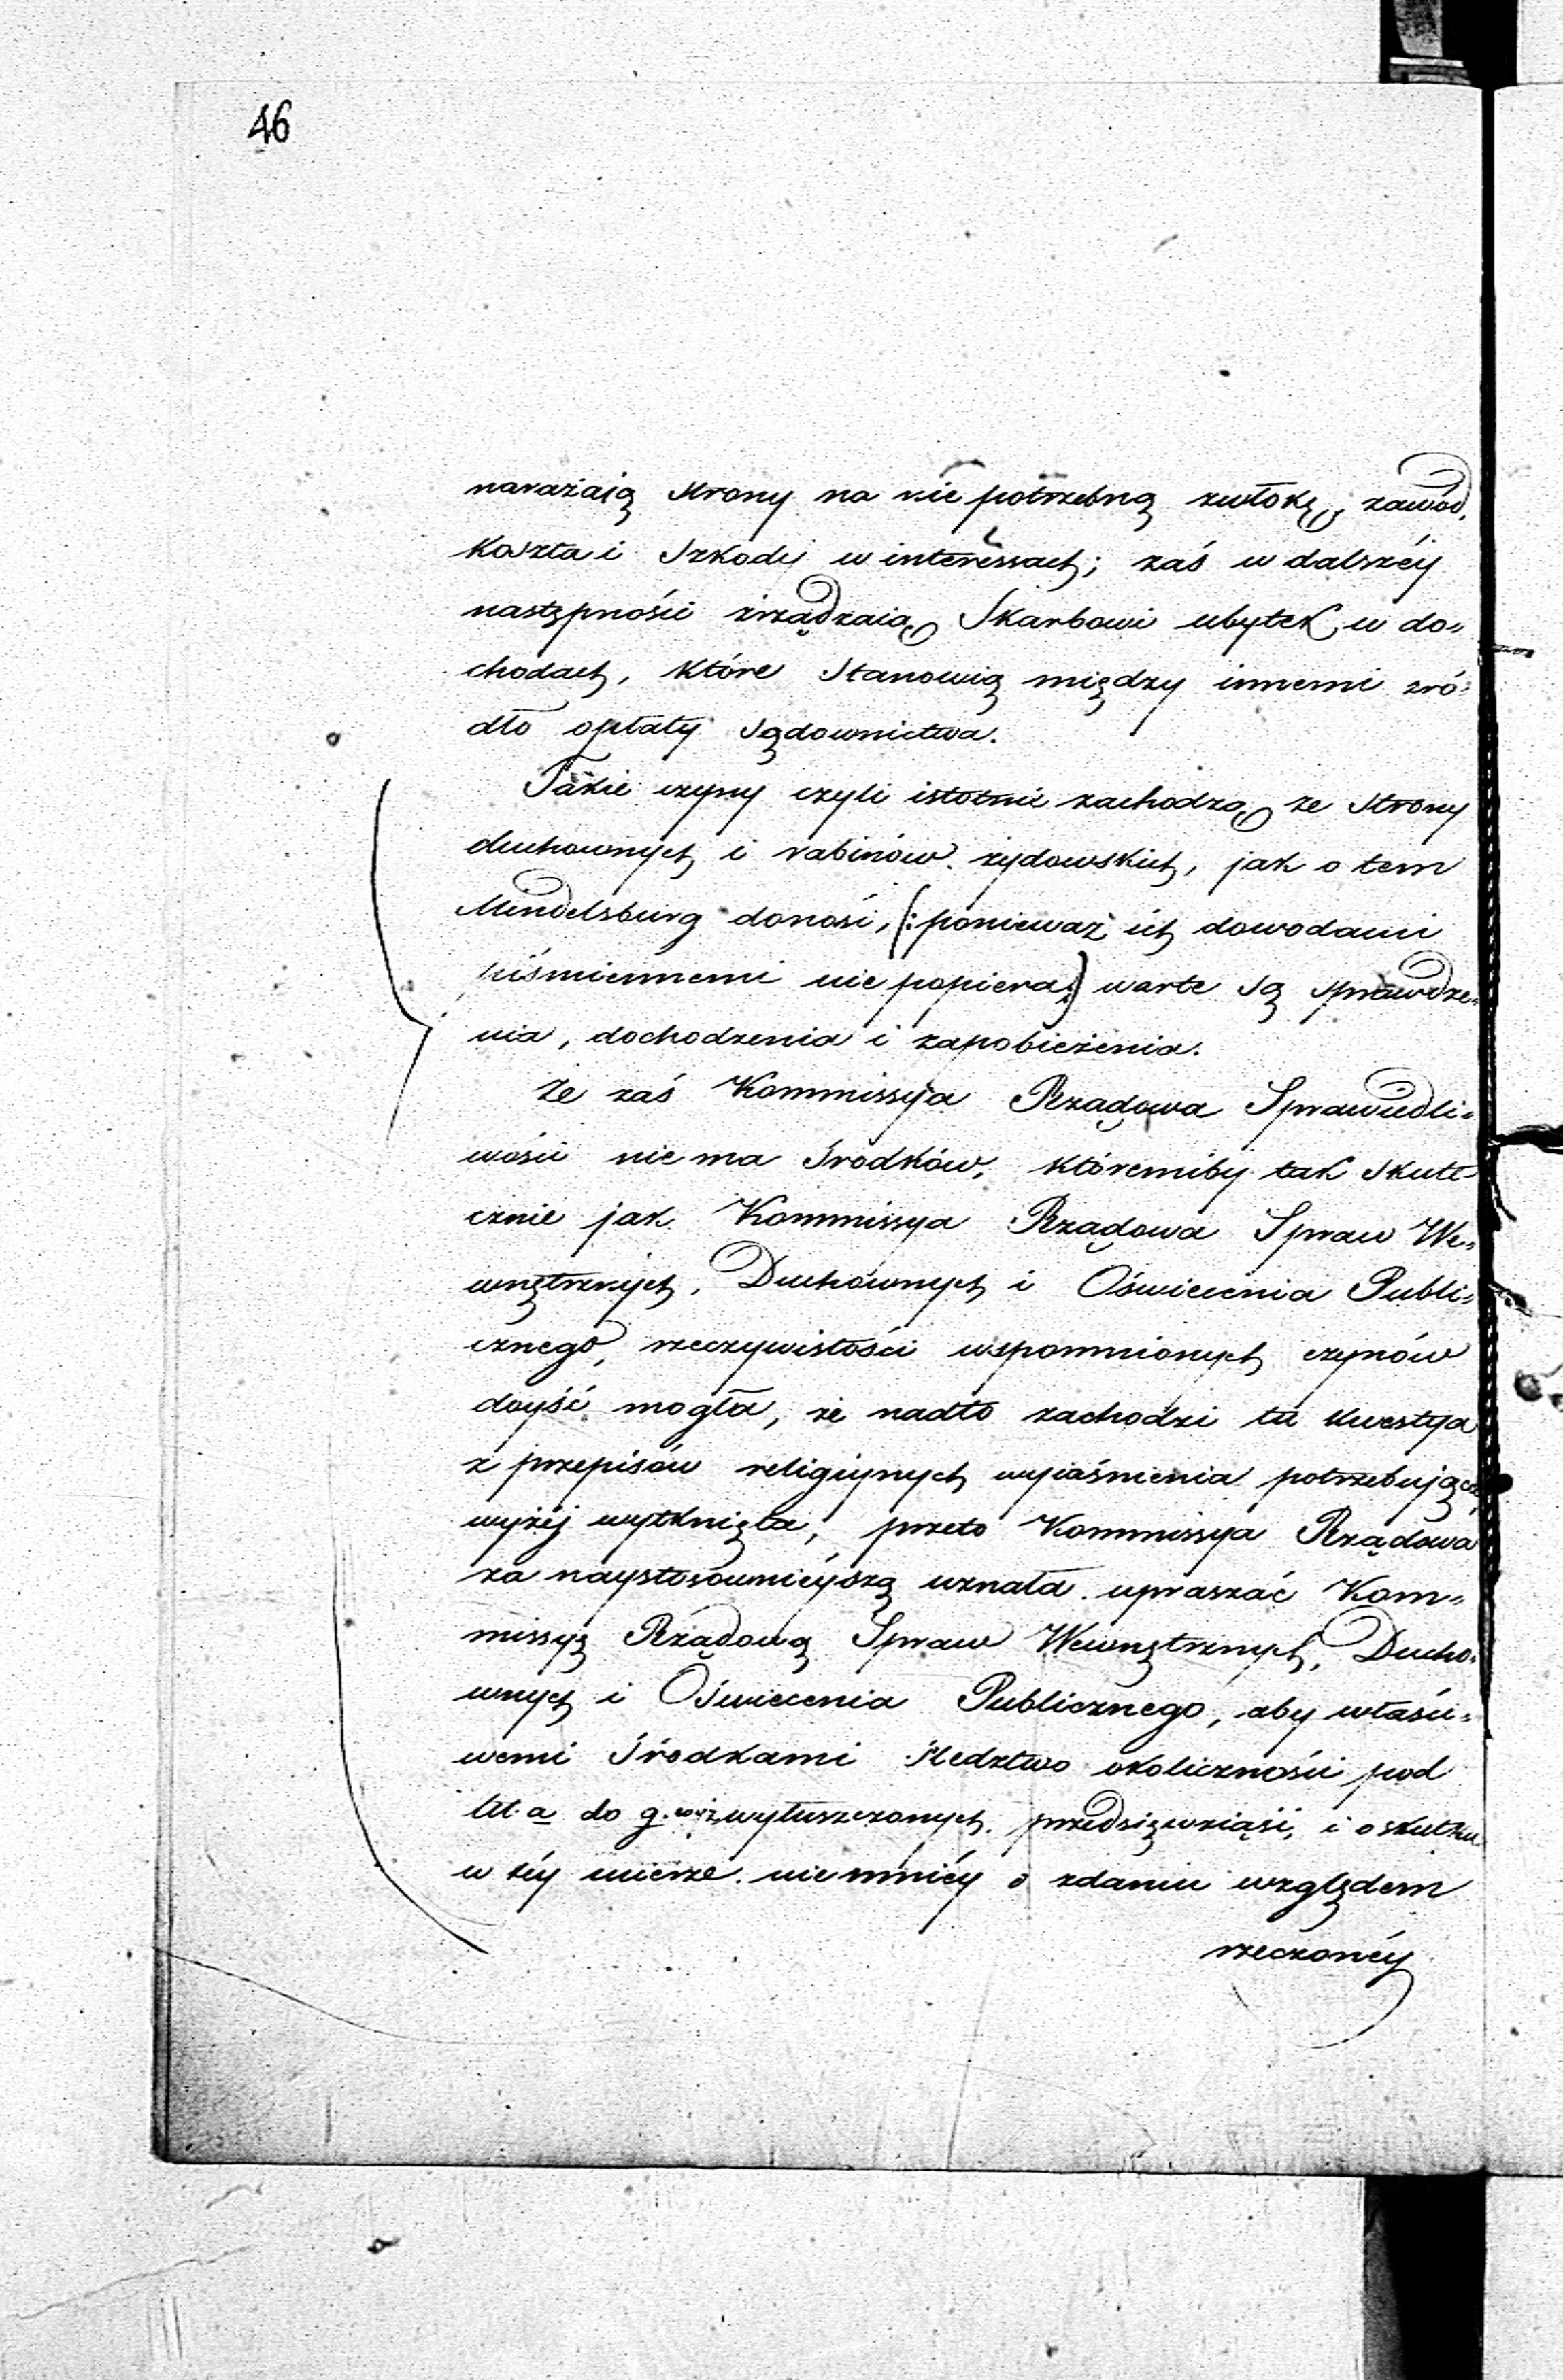 46
narażaią strony na nie potrzebną zwłokę, zawód,
koszta i szkody w interessach; zaś w dalszéy
następności zrządzaią Skarbowi ubytek w do=
chodach, które stanowią między innemi zró=
dło opłaty sądownictwa.
Takie czyny czyli istotnie zachodzą ze strony
duchownych i rabinów żydowskich, jak o tem
Mendelsburg donosi, (: ponieważ ich dowodami
piśmiennemi nie popiera:) warte są sprawdze=
nia, dochodzenia i zapobieżenia.
Że zaś Kommissya Rządowa Sprawiedli=
wości nie ma środków, któremiby tak skute=
cznie jak Kommissya Rządowa Spraw We=
wnętrznych, Duchownych i Oświecenia Publi=
cznego, rzeczywistości wspomnionych czynów
doyść mogła, że nadto zachodzi tu kwestya
z przepisów religiynych wyiaśnienia potrzebująca,
wyżéj wytknięta, przeto Kommissya Rządowa
za naystosownieyszą uznała upraszać Kom=
missyą Rządową Spraw Wewnętrznych, Ducho=
wnych i Oświecenia Publicznego, aby właści=
wemi środkami śledztwo okoliczności pod
lit. a do g. wyż. wyłuszczonych przedsięwziąść, i o skutku
w téy mierze niemniéy o zdaniu względem
rzeczonéy